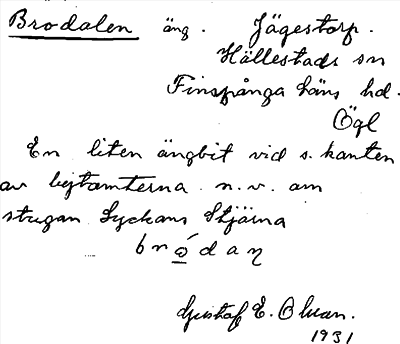 Brodalen äng. Jägestorp.
Hällestads sn
Finspånga läns hd.
Ögl
En liten ängbit vid s. kanten
av bytomterna n.v. om
stugan Lyckans Stjärna
brọ́daṇ
Gustaf E. Olsson.
1931